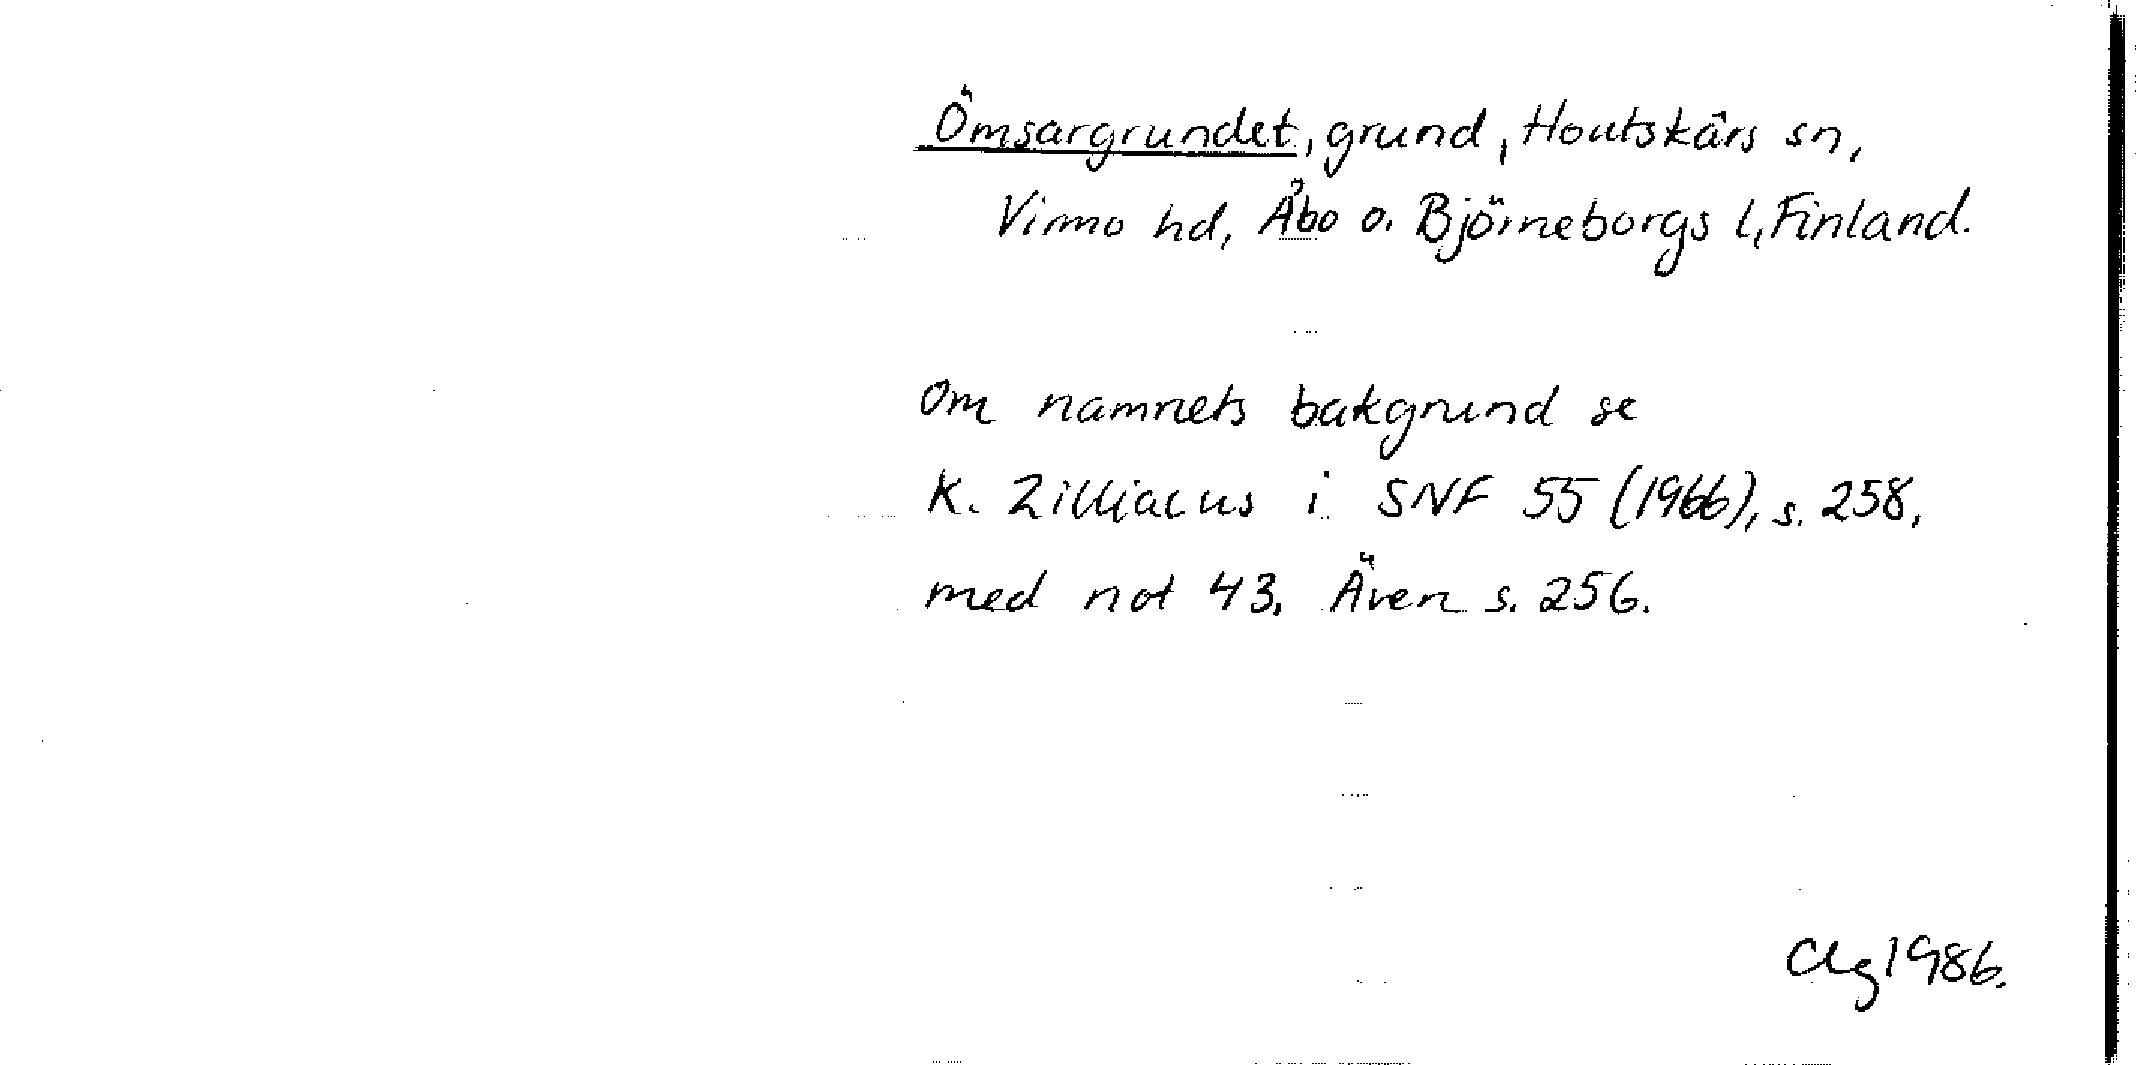 Ömsargrundet, grund, Houtskärs sn,
Virmo hd, Åbo o. Björneborgs l, Finland.
Om namnets bakgrund se
K. Zilliacus i SNF 55 (1966), s. 258,
med not 43. Även s. 256.
1986.